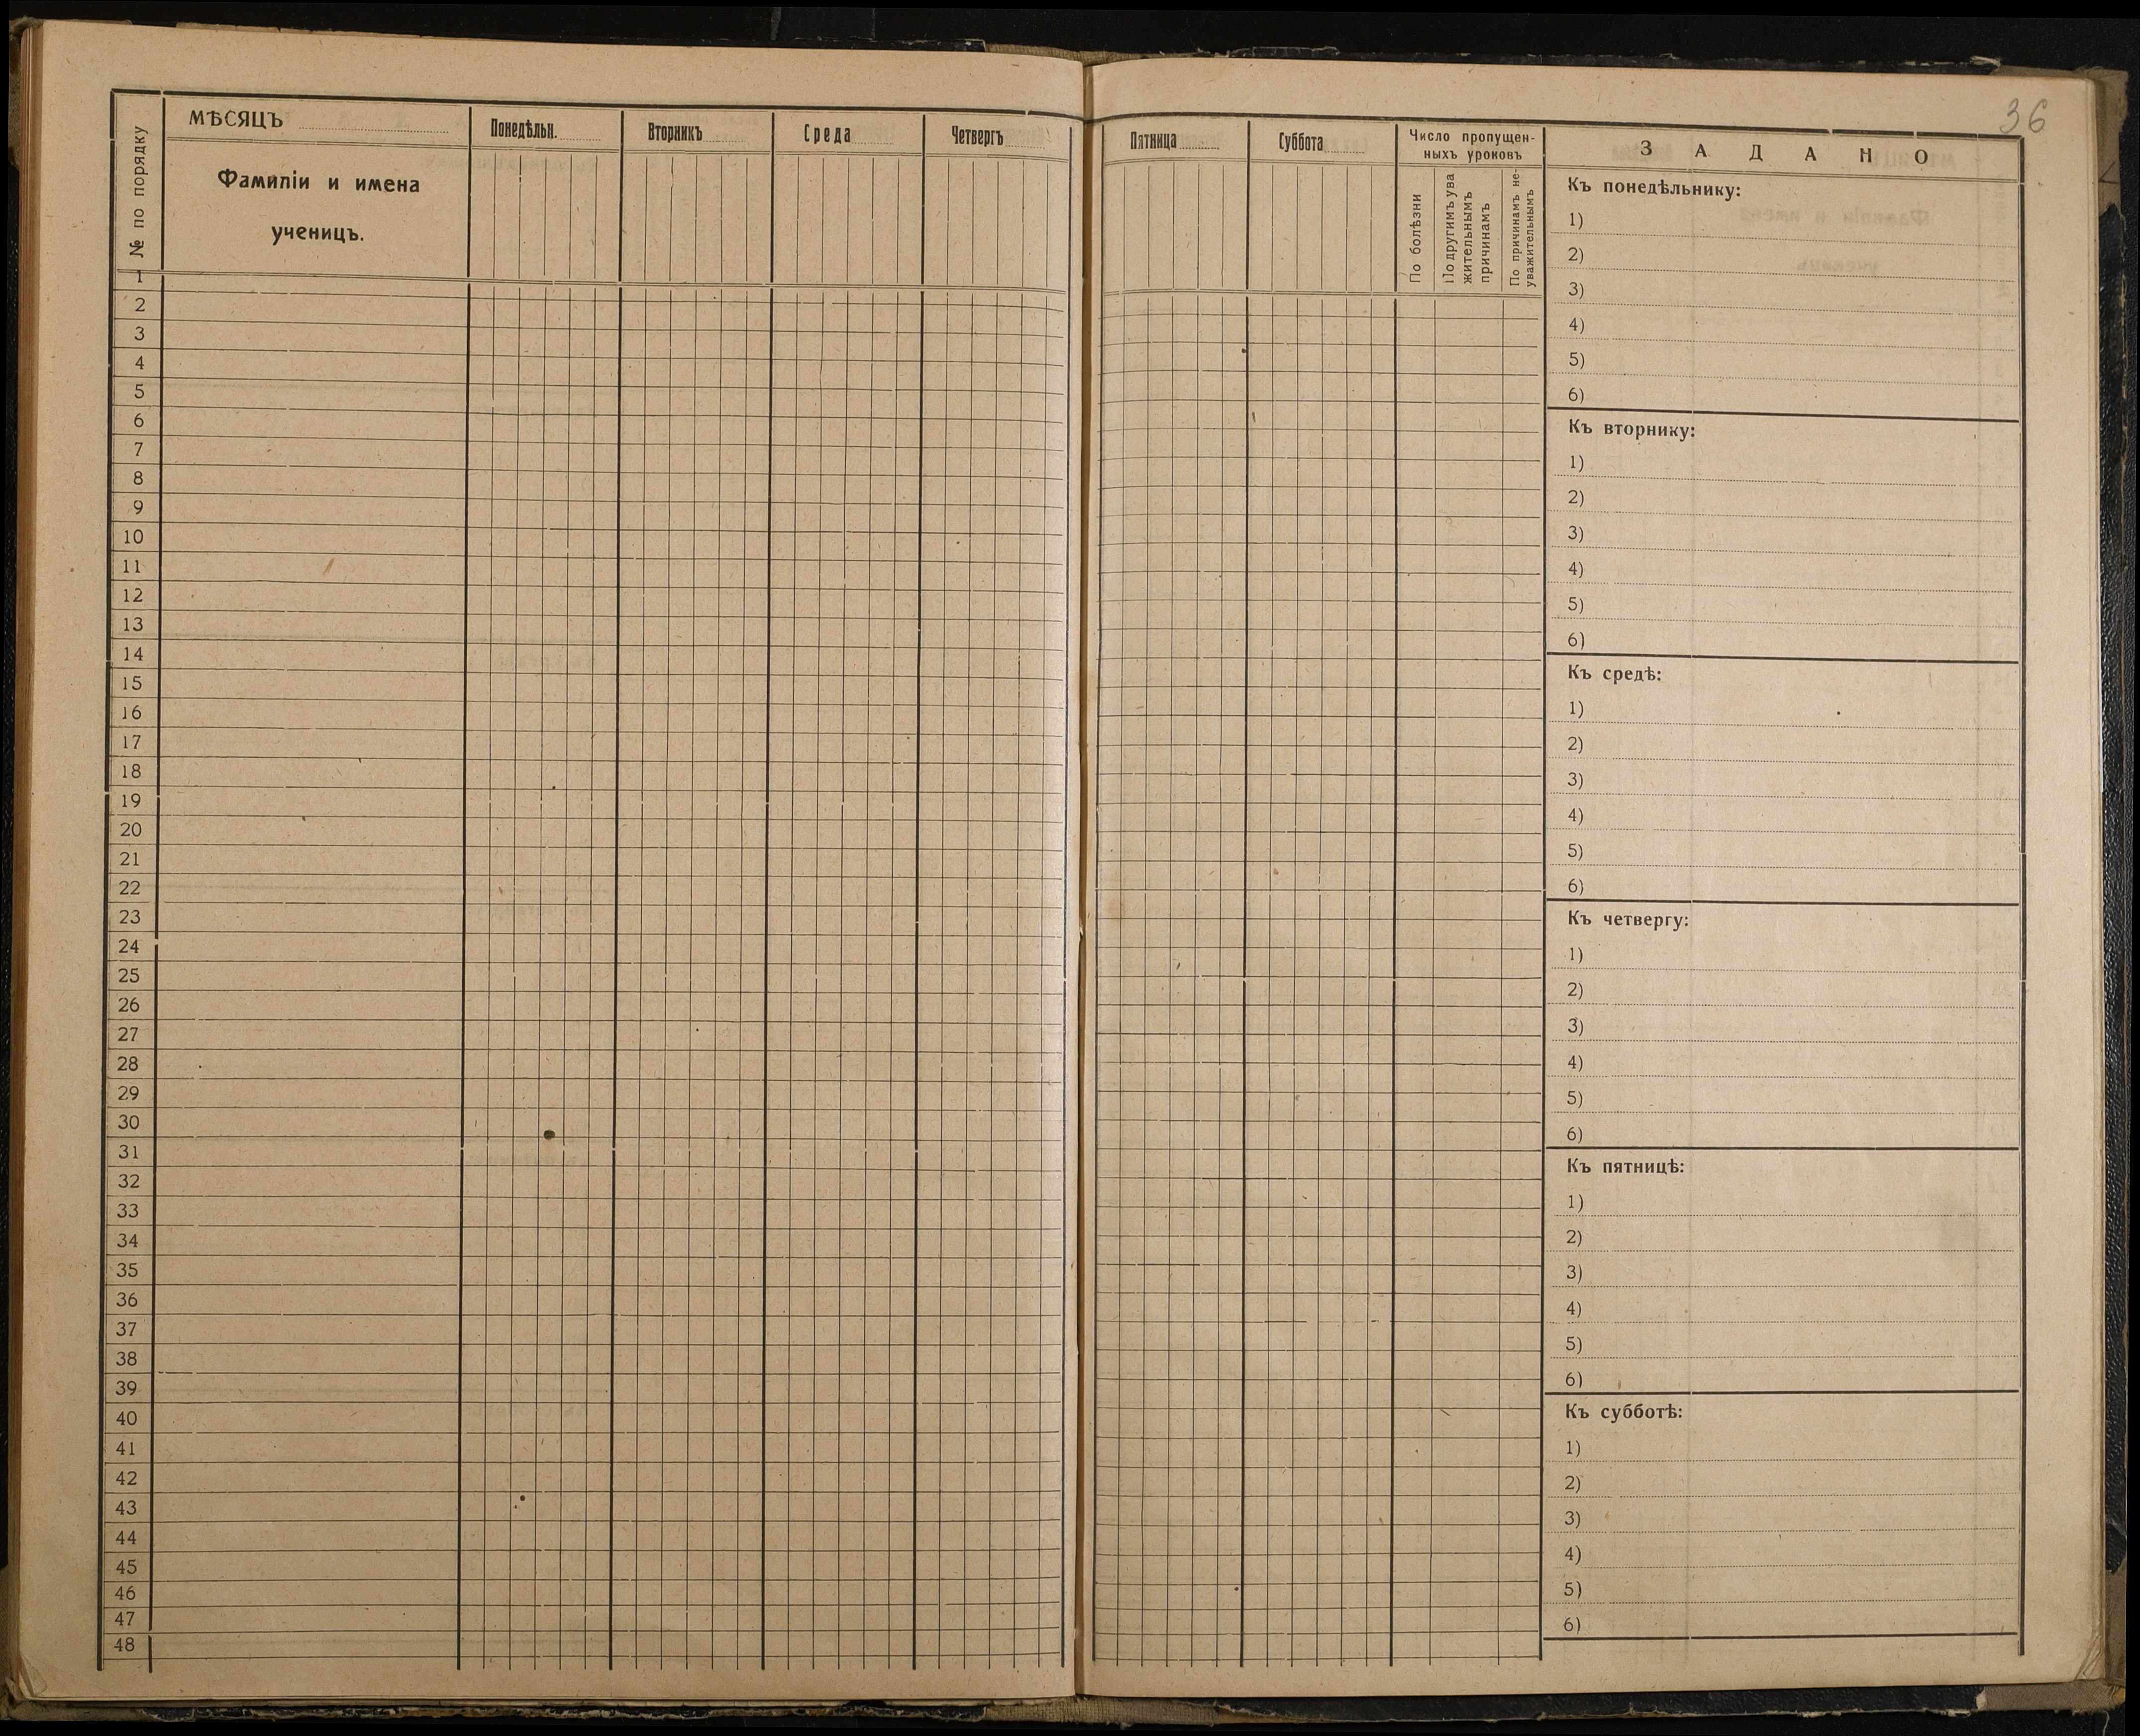 36
№ по порядку
МѢСЯЦЪ
Фамиліи и имена
ученицъ.
Понедѣльн.
Вторникъ
Среда
Четвергъ
1
2
3
4
5
6
7
8
9
10
11
12
13
14
15
16
17
18
19
20
21
22
23
24
25
26
27
28
29
30
31
32
33
34
35
36
37
38
39
40
41
42
43
44
45
46
47
48
Пятница
Суббота
Число пропущен-
ныхъ уроковъ
По болѣзни
По другимъ ува
жительнымъ
причинамъ
По причинамъ не-
уважительнымъ
ЗАДАНО
Къ понедѣльнику:
1)
2)
3)
4)
5)
6)
Къ вторнику:
1)
2)
3)
4)
5)
6)
Къ средѣ:
1)
2)
3)
4)
5)
6)
Къ четвергу:
1)
2)
3)
4)
5)
6)
Къ пятницѣ:
1)
2)
3)
4)
5)
6)
Къ субботѣ:
1)
2)
3)
4)
5)
6)